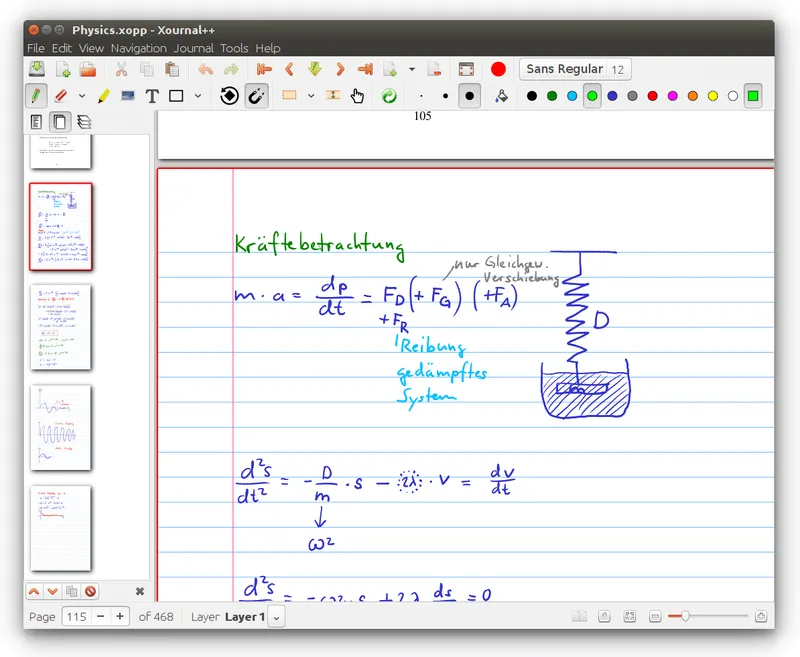 Physics.xopp - Xournal++
File Edit View Navigation Journal Tools Help
Sans Regular 12
105
Kräftebetrachtung
nur Gleichgew.
Verschiebung
m · a = dp/dt = F_D (+ F_G) (+F_A)
+ F_R
Reibung
gedämpftes
System
D
m
d²s/dt² = - D/m · s - 2λ · v = dv/dt
ω²
d²s = -ω² · s + 2λ ds = 0
Page 115 of 468 Layer Layer 1